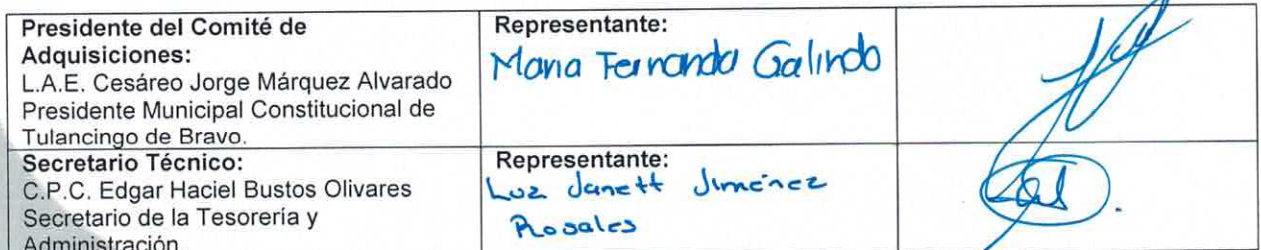 Presidente del Comité de
Adquisiciones:
L.A.E. Cesáreo Jorge Márquez Alvarado
Presidente Municipal Constitucional de
Tulancingo de Bravo.
Representante:
Maria Fernanda Galindo
Secretario Técnico:
C.P.C. Edgar Haciel Bustos Olivares
Secretario de la Tesorería y
Administración
Representante:
Luz Janett Jiménez
Rosales